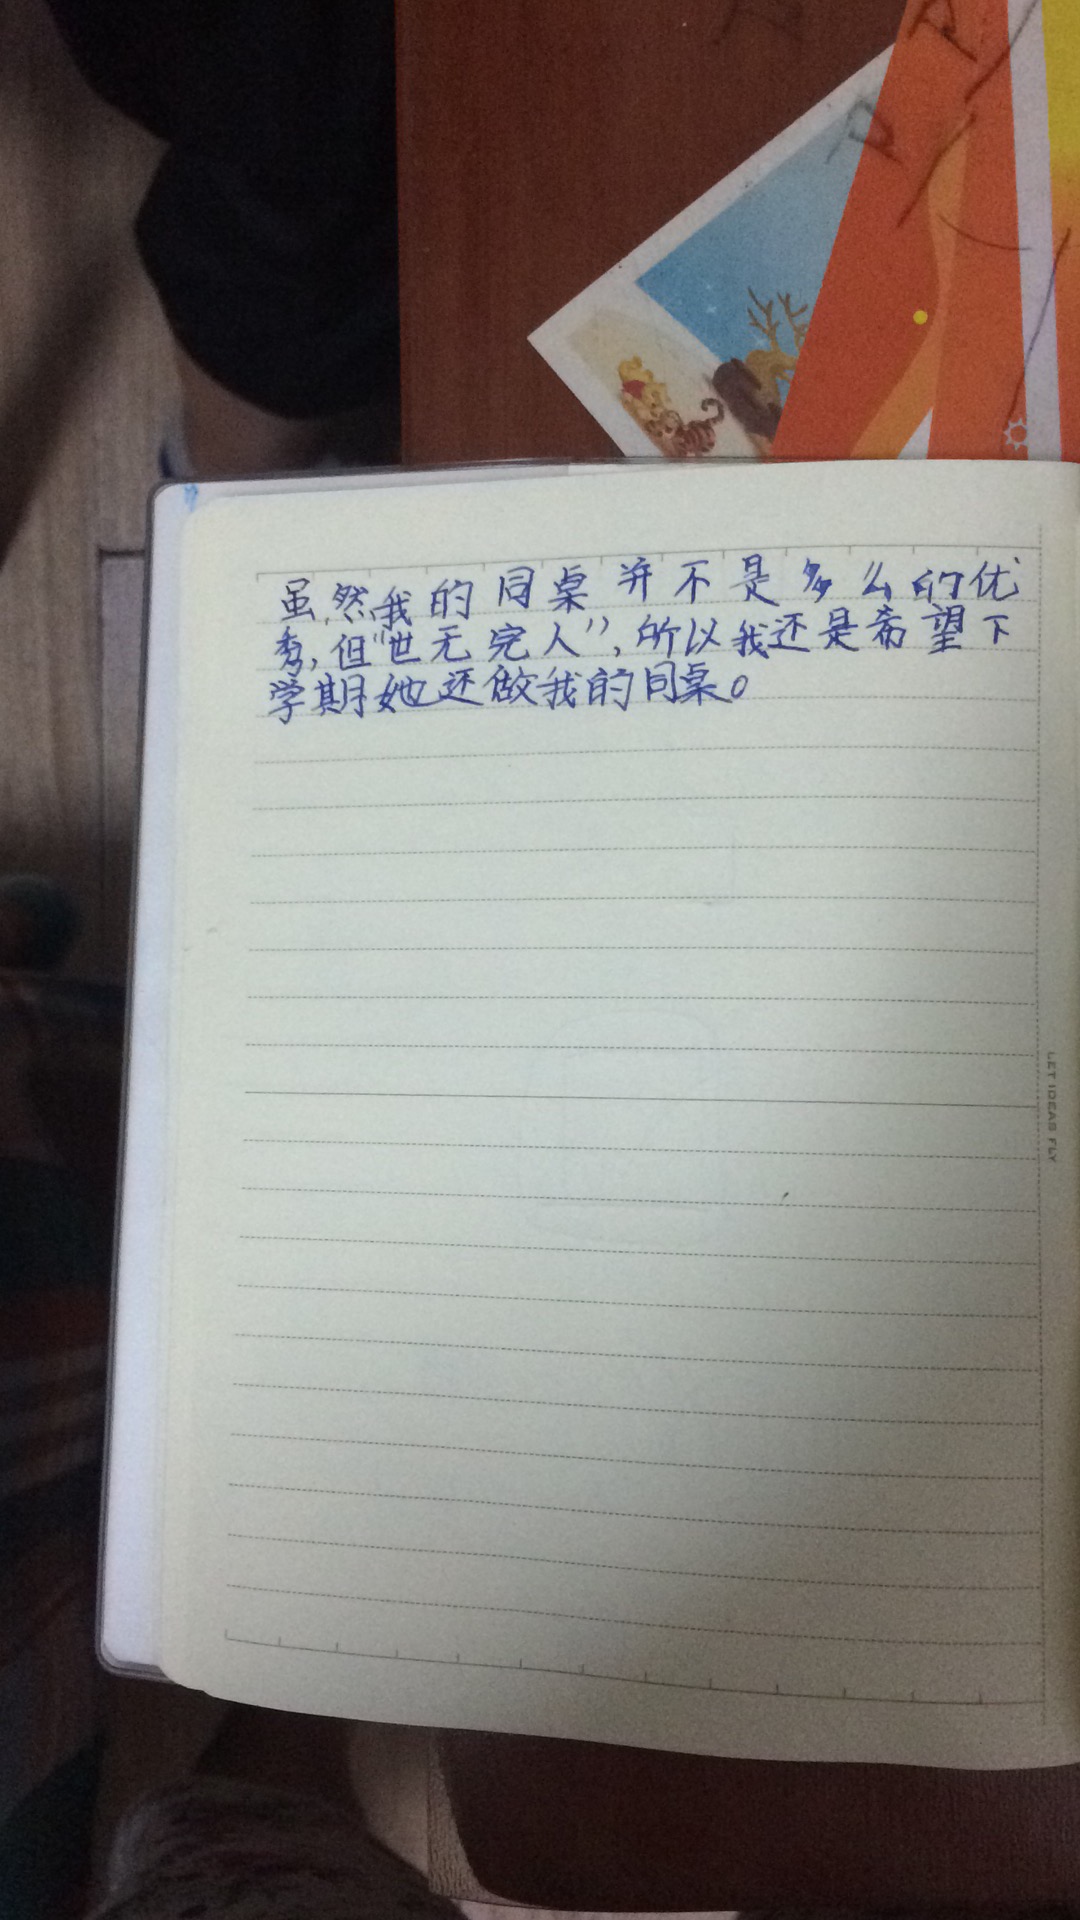 虽然我的同桌并不是多么的优
秀,但“世无完人”,所以我还是希望下
学期她还做我的同桌。
LET IDEAS FLY